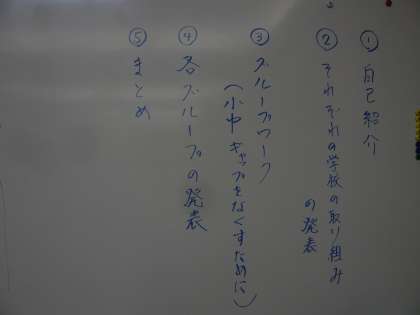 ① 自己紹介
② それぞれの学校の取り組み
の発表
③ グループワーク
(小中ギャップをなくすために)
④ 各グループの発表
⑤ まとめ